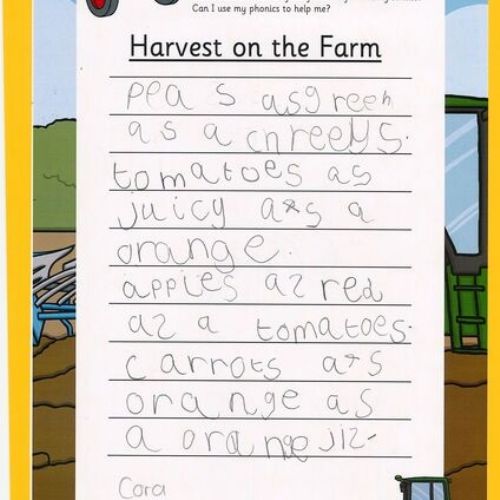 Can I use my phonics to help me?
Harvest on the Farm
pea s asgreeh
as a
tomatoes as
juicy as a
orange.
apples az red
az a tomatoes.
carrots as
orange as
a orange
Cora